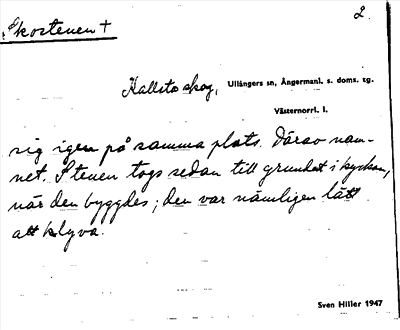 Skostenen + 2.
Kallsta skog, Ullångers sn, Ångermanl. s. doms. tg.
Västernorrl. l.
sig igen på samma plats. Därav nam-
net. Stenen togs sedan till grundst i kyrkan,
när den byggdes; den var nämligen lätt
att klyva.
Sven Hiller 1947